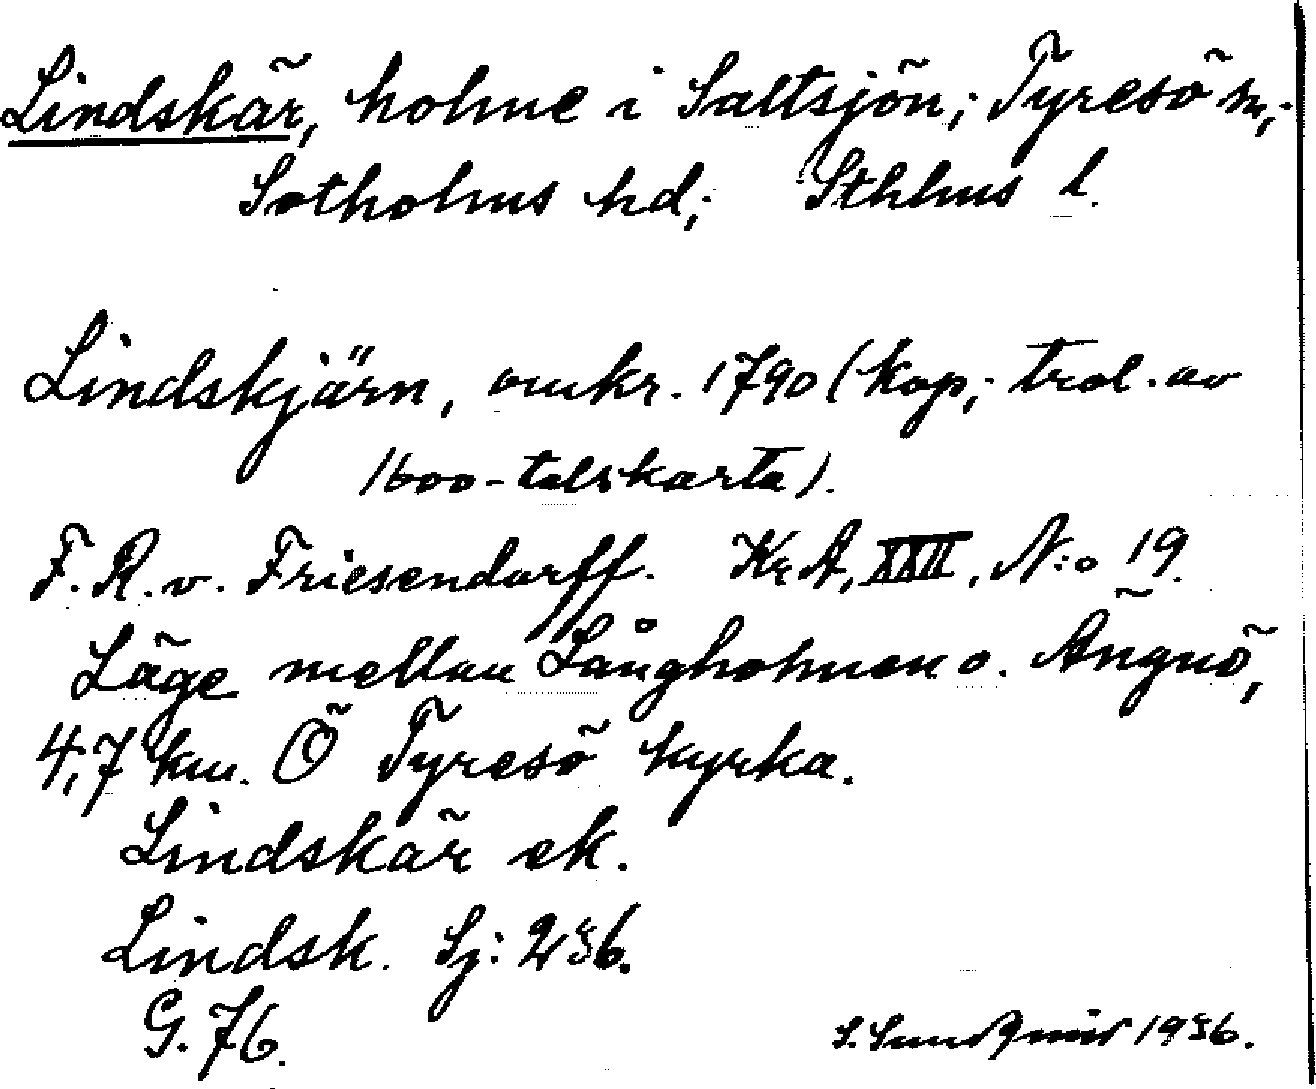 Lindskär, holme i Saltsjön; Tyresö sn;
Sotholms hd; Sthlms l.
Lindskjärn, omkr. 1790 (kop; trol. av
1600-talskarta).
F. R. v. Friesendorff. Kr A, XXII, N:o 19.
Läge mellan Långholmen o. Ängnö,
4,7 km. Ö Tyresö kyrka.
Lindskär ek.
Lindsk. Sj: 236.
G. 76.
S. Sundqvist 1936.